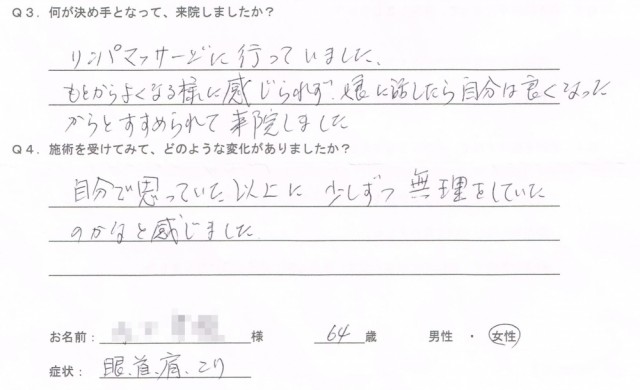 Q3. 何が決め手となって、来院しましたか？
リンパマッサージに行っていました、
もとからよくなる様に感じられず、娘に話したら自分は良くなった
からとすすめられて来院しました
Q4. 施術を受けてみて、どのような変化がありましたか？
自分で思っていた以上に少しずつ無理をしていた
のかなと感じました
お名前： 様 64 歳 男性 ・ 女性
症状： 眼、首、肩、こり